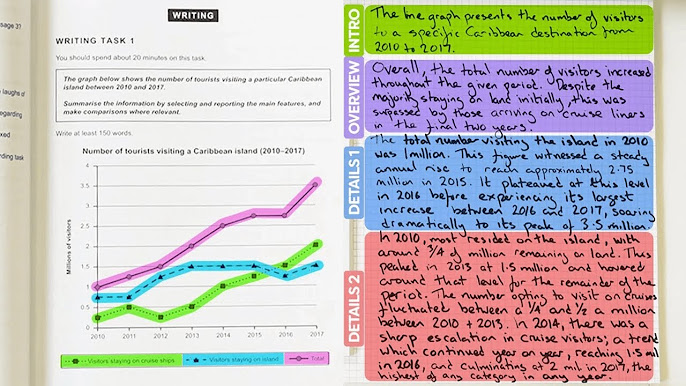 sage 3)
laughs of
egarding
xed
nding task
WRITING
WRITING TASK 1
You should spend about 20 minutes on this task.
The graph below shows the number of tourists visiting a particular Caribbean
island between 2010 and 2017.
Summarise the information by selecting and reporting the main features, and
make comparisons where relevant.
Write at least 150 words.
Number of tourists visiting a Caribbean island (2010–2017)
Millions of visitors
4
3.5
3
2.5
2
1.5
1
0.5
0
2010 2011 2012 2013 2014 2015 2016 2017
Visitors staying on cruise ships
Visitors staying on island
Total
INTRO
The line graph presents the number of visitors
to a specific Caribbean destination from
2010 to 2017.
OVERVIEW
Overall, the total number of visitors increased
throughout the given period. Despite the
majority staying on land initially, this was
supassed by those arriving on cruise liners
in the final two years.
DETAILS 1
The total number visiting the island in 2010
was 1 million. This figure witnessed a steady
annual rise to reach approximately 2.75
million in 2015. It plateaued at this level
in 2016 before experiencing its largest
increase between 2016 and 2017, soaring
dramatically to its peak of 3.5 million.
DETAILS 2
In 2010, most resided on the island, with
around 3/4 of million remaining on land. This
peaked in 2013 at 1.5 million and hovered
around that level for the remainder of the
period. The number opting to visit on cruises
fluctuated between a 1/4 and 1/2 a million
between 2010 + 2013. In 2014, there was a
sharp escalation in cruise visitors; a trend
which continued year on year, reaching 1.5 mil
in 2016, and culminating at 2 mil in 2017, the
highest of any category in any year.